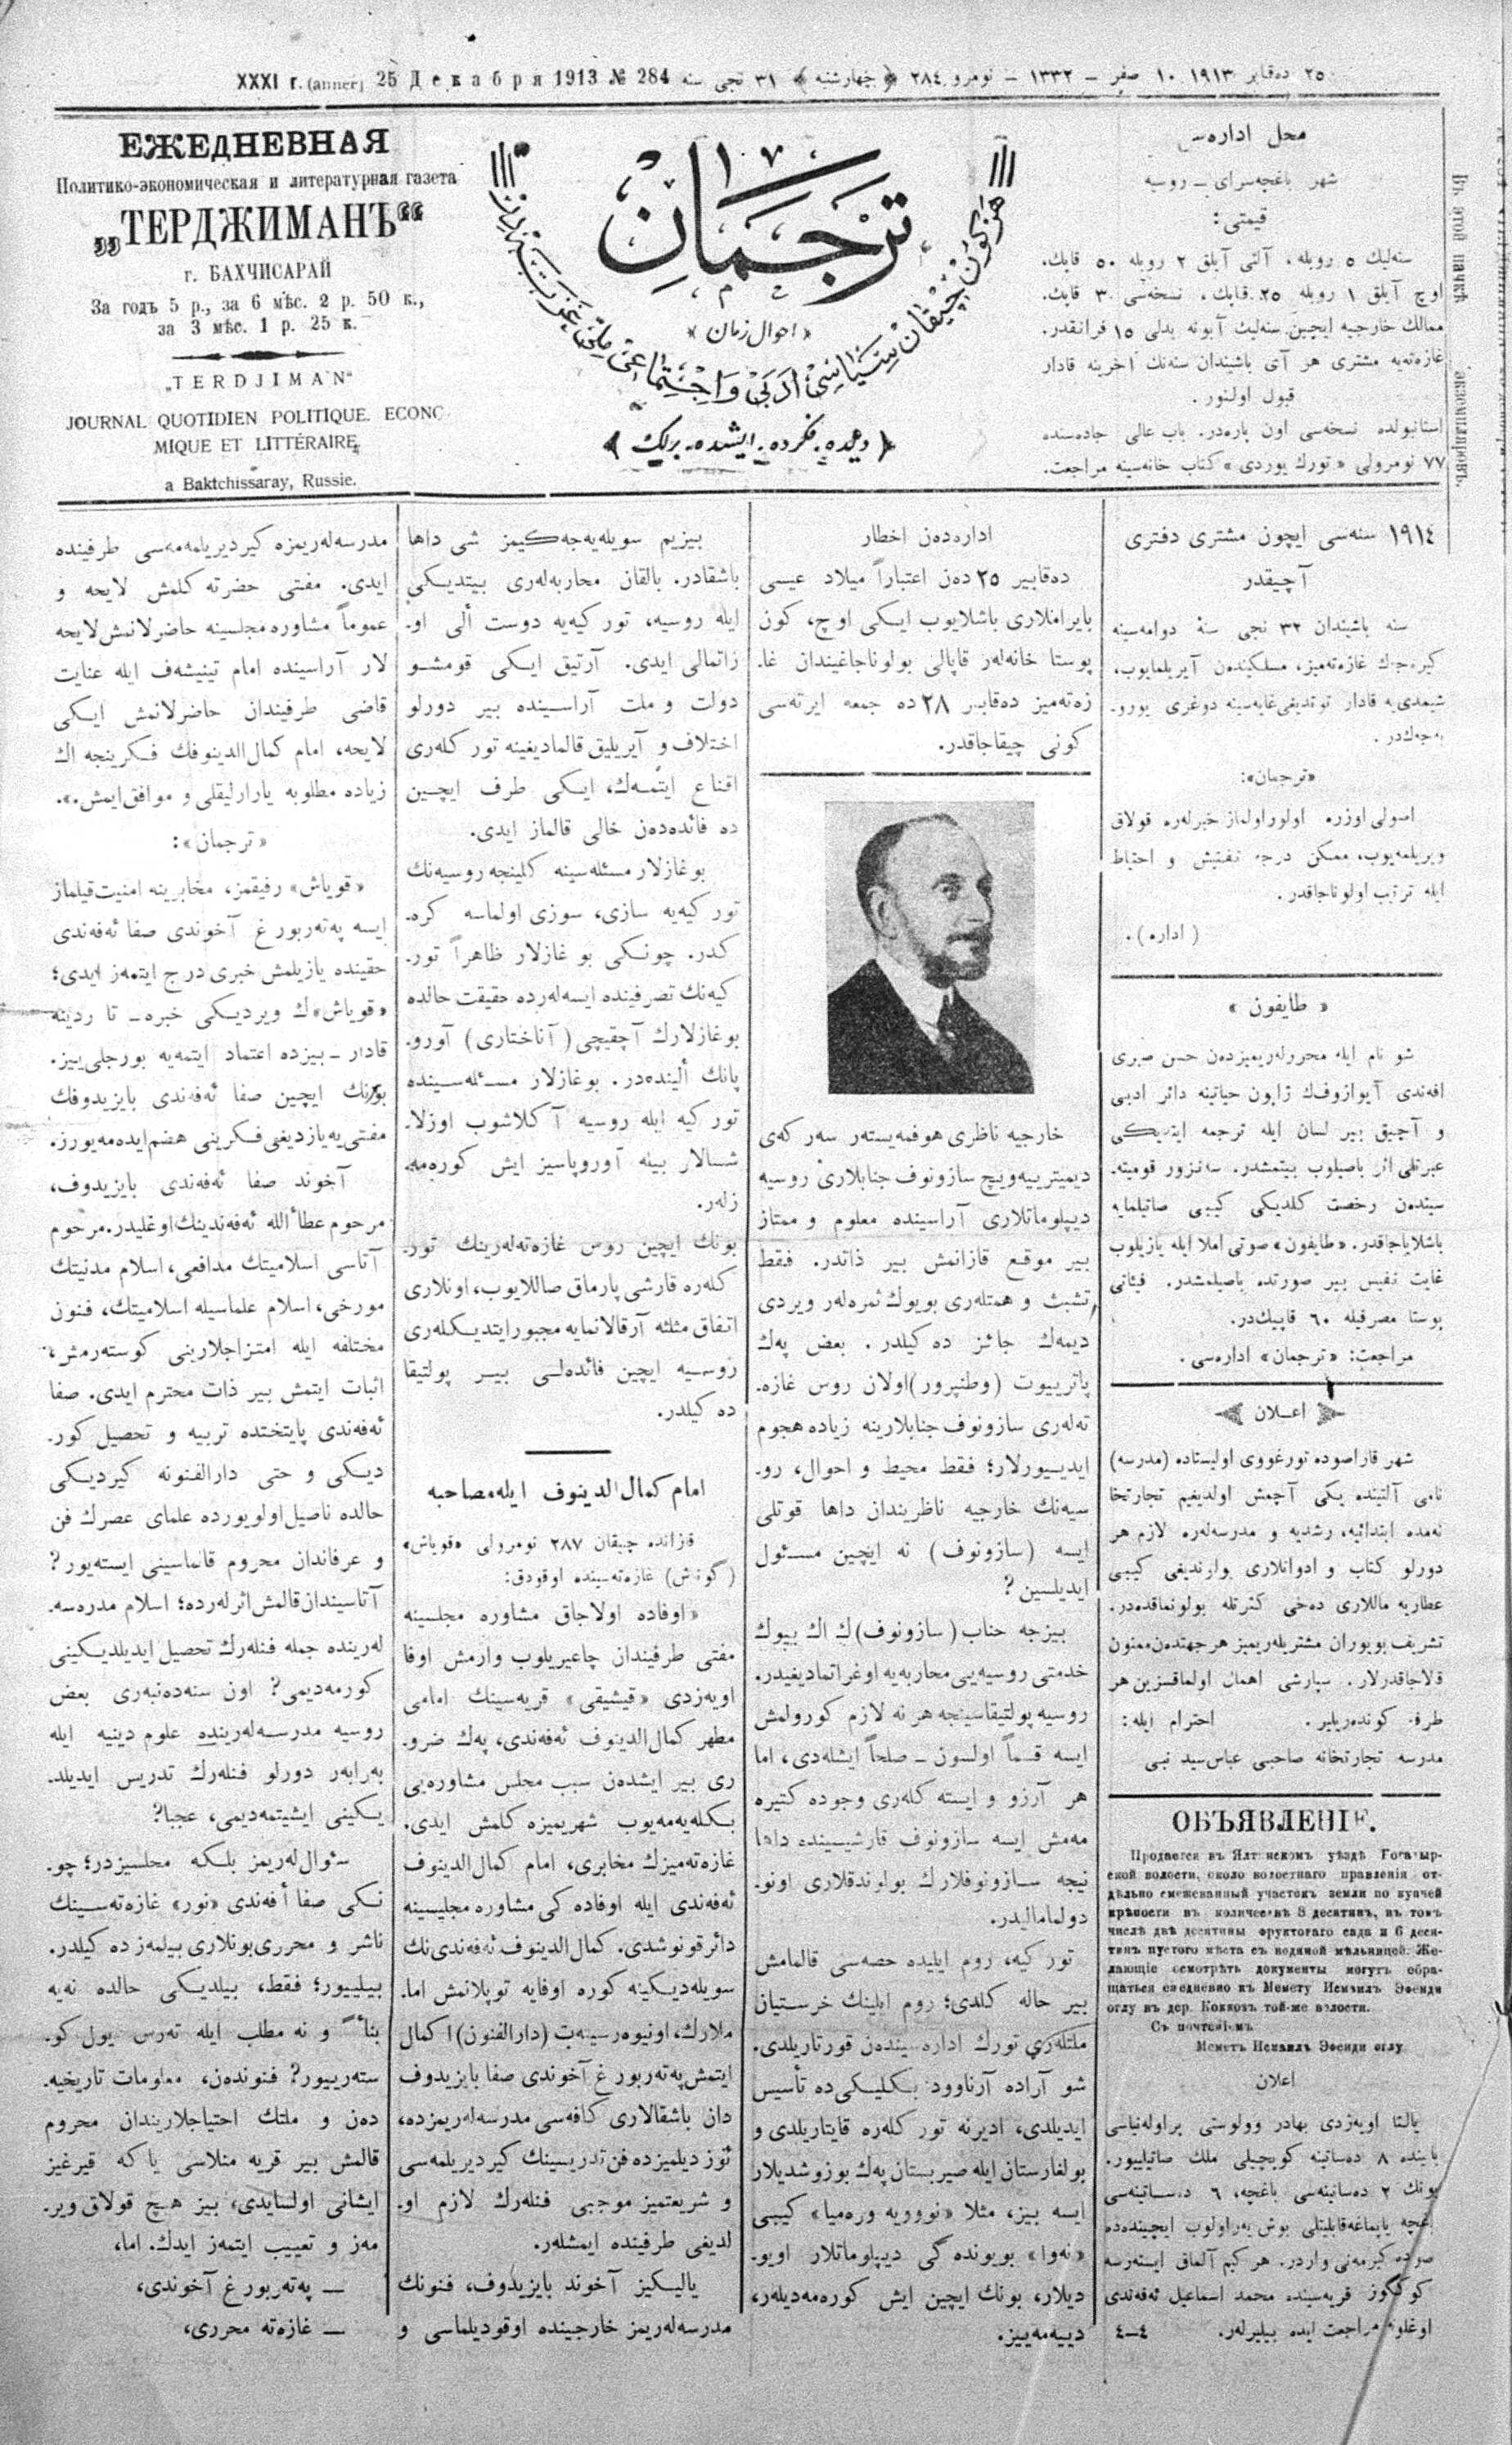 XXXI г. (annee) 25 Декабря 1913 № 284 ٢٥ دەقابر ١٩١٣ ١٠ صفر – ١٣٣٢ – نومرو ٢٨٤ ﴿ چهارشنبه ﴾ ٣١ نجی سنه
ЕЖЕДНЕВНАЯ
Политико-экономическая и литературная газета
„ТЕРДЖИМАНЪ“
г. БАХЧИСАРАЙ
За годъ 5 р., за 6 мѣс. 2 р. 50 к.,
за 3 мѣс. 1 р. 25 к.
„TERDJIMAN“
JOURNAL QUOTIDIEN POLITIQUE. ECONO
MIQUE ET LITTÉRAIRE
a Baktchissaray, Russie.
ترجمان
« احوال زمان »
هر كون چیقان سیاسی، ادبی و اجتماعی ملی غزته
﴿ دیلده، فكرده، ایشده، برلك ﴾
محل اداره‌سی
شهر باغچه‌سرای ـ روسیه
قیمتی:
سنه‌لیك ٥ روبله، آلتی آیلق ٢ روبله ٥٠ قاپك.
اوچ آیلق ١ روبله ٢٥ قاپك، نسخه‌سی ٣٠ قاپك.
ممالك خارجیه ایچین سنه‌لیك آبونه بدلی ١٥ فرانقدر.
غازه‌ته‌یه مشتری هر آی باشیندان سنه‌نك آخرینه قادار
قبول اولنور.
استانبولده نسخه‌سی اون پاره‌در. باب عالی جاده‌سنده
٧٧ نومرولی «تورك یوردی» كتاب خانه‌سینه مراجعت.
Въ этой пачкѣ экземпляровъ.
١٩١٤ سنه‌سی ایچون مشتری دفتری
آچیقدر
سنه باشیندان ٣٢ نجی سنهٔ دوامه‌سینه
كیره‌جك غازه‌ته‌میز، مسلكیندن آیریلمایوب،
شیمدی‌یه قادار توتدیغی غایه‌سینه دوغری یورو-
یه‌جه‌كدر.
«ترجمان»:
اصولی اوزره اولور اولماز خبرلره قولاق
ویریلمه‌یوب، ممكن درجه تفتیش و احتیاط
ایله ترتیب اولوناجاقدر.
( اداره ).
« طایفون »
شو نام ایله محررلریمیزدن حسن صبری
افه‌ندی آیوازوف‌ك ژاپون حیاتینه دائر ادبی
و آچیق بیر لسان ایله ترجمه ایتدیكی
عبرتلی اثر باصیلوب بیتمشدر. سه‌نزور قومیته-
سیندن رخصت كلدیكی كیبی صاتیلمایه
باشلایاجاقدر. «طایفون» صوتی املا ایله یازیلوب
غایت نفیس بیر صورتده باصیلمشدر. فیئاتی
پوستا مصرفیله ٦٠ قاپیك‌در.
مراجعت: «ترجمان» اداره‌سی.
اعـلان
شهر قاراصوده تورغووی اولیستاده (مدرسه)
نامی آلتینده یكی آچمش اولدیغیم تجارتخا
نه‌مده ابتدائیه، رشدیه و مدرسه‌لره لازم هر
دورلو كتاب و ادواتلاری وارندیغی كیبی
عطاریه ماللاری دخی كثرتله بولونماقده‌در.
تشریف بویوران مشتریله‌ریمیز هر جهتدن ممنون
قلاجاقدرلار. سپارشی اهمال اولماقسزین هر
طرفه كونده‌ریلیر. احترام ایله:
مدرسه تجارتخانه صاحبی عباس سید نبی
ОБЪЯВЛЕНІЕ.
Продается въ Ялтинскомъ уѣздѣ Богатыр-
ской волости, около волостнаго правленія от-
дѣльно смежеванный участокъ земли по купчей
крѣпости въ количествѣ 8 десятинъ, въ томъ
числѣ двѣ десятины фруктоваго сада и 6 деся-
тинъ пустого мѣста съ водяной мѣльницей. Же-
лающіе осмотрѣть документы могутъ обра-
щаться ежедневно къ Мемету Исмаилъ Эфенди
оглу въ дер. Коккозъ той-же волости.
Съ почтеніемъ
Меметъ Исмаилъ Эфенди оглу
اعلان
یالتا اویه‌زدی بهادر وولوستی پراوله‌نیاسی
یاینده ٨ ده‌ساتینه كوپچیلی ملك صاتیلییور.
بونك ٢ ده‌ساتینه‌سی باغچه، ٦ ده‌ساتینه‌سی
باغچه یاپماغه قابلیتلی بوش یه‌ر اولوب ایچینده‌ده
صو ده‌كیرمه‌نی واردر. هر كیم آلماق ایسته‌رسه
كوككوز قریه‌سینده محمد اسماعیل ئه‌فه‌ندی
اوغلونه مراجعت ایده بیلیرلر. ٤—٤
اداره‌دن اخطار
ده‌قابیر ٢٥ ده‌ن اعتباراً میلاد عیسی
بایراملاری باشلایوب ایكی اوچ، كون
پوستا خانه‌لر قاپالی بولوناجاغیندان غا-
زه‌ته‌میز ده‌قابر ٢٨ ده جمعه ایرته‌سی
كونی چیقاجاقدر.
خارجیه ناظری هوفمه‌یسته‌ر سه‌ر كه‌ی
دیمیترییه‌ویچ سازونوف جنابلاری روسیه
دیپلوماتلاری آراسینده معلوم و ممتاز
بیر موقع قازانمش بیر ذاتدر. فقط
تشبث و همتله‌ری بویوك ثمره‌لر ویردی
دیمه‌ك جائز ده‌كیلدر. بعض په‌ك
پاترییوت (وطنپرور) اولان روس غازه-
ته‌له‌ری سازونوف جنابلارینه زیاده هجوم
ایدییورلار؛ فقط محیط و احوال، رو-
سیه‌نك خارجیه ناظریندان داها قوتلی
ایسه (سازونوف) نه ایچین مسئول
ایدیلسین؟
بیزجه جناب (سازونوف)ك اك بیوك
خدمتی روسیه‌یی محاربه‌یه اوغراتمادیغیدر.
روسیه پولتیقاسینجه هر نه لازم كورولمش
ایسه قسماً اولسون ـ صلحاً ایشله‌دی، اما
هر آرزو و ایسته كله‌ری وجوده كتیره
مه‌مش ایسه سازونوف قارشیسینده داها
نیجه سازونوفلارك بولوندقلاری اونو-
دولمامالیدر.
توركیه، روم ایلیده حصه‌سی قالمامش
بیر حاله كلدی؛ روم ایلینك خرستیان
ملتله‌ری تورك اداره‌سیندن قورتاریلدی.
شو آراده آرناوود بكلیكی ده تأسیس
ایدیلدی، ادیرنه توركله‌ره قایتاریلدی و
بولغارستان ایله صیربستان په‌ك بوزوشدیلار
ایسه بیز، مثلا «نوویه وره‌میا» كیبی
«نه‌وا» بویونده‌گی دیپلوماتلار اویو-
دیلار، بونك ایچین ایش كوره‌مه‌دیله‌ر،
دییه‌مه‌ییز.
بیزیم سویله‌یه‌جه‌كیمز شی داها
باشقادر. بالقان محاربه‌له‌ری بیتدیكی
ایله روسیه، توركیه‌یه دوست ألی او-
زاتمالی ایدی. آرتیق ایكی قومشو
دولت و ملت آراسینده بیر دورلو
اختلاف و آیریلیق قالمادیغینه توركله‌ری
اقناع ایتمه‌ك، ایكی طرف ایچین
ده فائده‌ده‌ن خالی قالماز ایدی.
بوغازلار مسئله‌سینه كلینجه روسیه‌نك
توركیه‌یه سازی، سوزی اولماسه كره-
كدر. چونكی بو غازلار ظاهراً تور-
كیه‌نك تصرفینده ایسه‌لرده حقیقت حالده
بوغازلارك آچقیچی (آناختاری) آورو-
پانك ألینده‌در. بوغازلار مسئله‌سینده
توركیه ایله روسیه آكلاشوب اوزلا-
شسالار بیله آوروپاسیز ایش كوره‌مه-
زله‌ر.
بونك ایچین روس غازه‌ته‌له‌رینك تور-
كله‌ره قارشی پارماق صاللایوب، اونلاری
اتفاق مثلثه آرقالانمایه مجبور ایتدیكله‌ری
روسیه ایچین فائده‌لی بیر پولتیقا
ده‌كیلدر.
امام كمال الدینوف ایله مصاحبه
قزانده چیقان ٢٨٧ نومرولی «قویاش»
(گونش) غازه‌ته‌سینده اوقودق:
«اوفاده اولاجاق مشاوره مجلسینه
مفتی طرفیندان چاغیریلوب وارمش اوفا
اویه‌زدی «قیشیقی» قریه‌سینك امامی
مطهر كمال الدینوف ئه‌فه‌ندی، په‌ك ضرو-
ری بیر ایشدن سبب مجلس مشاوره‌یی
بكله‌یه‌مه‌یوب شهریمیزه كلمش ایدی.
غازه‌ته‌میزك مخابری، امام كمال الدینوف
ئه‌فه‌ندی ایله اوفاده كی مشاوره مجلیسینه
دائر قونوشدی. كمال الدینوف ئه‌فه‌ندی نك
سویله‌دیكینه كوره اوفایه توپلانمش اما-
ملارك، اونیوه‌رسیته‌ت (دارالفنون) اكمال
ایتمش په‌ته‌ربورغ آخوندی صفا بایزیدوف
دان باشقالاری كافه‌سی مدرسه‌له‌ریمزده،
ئوز دیلمیزده فن تدریسینك كیردیریلمه‌سی
و شریعتمیز موجبی فنله‌رك لازم او-
لدیغی طرفینده ایمشله‌ر.
یالیكیز آخوند بایزیدوف، فنونك
مدرسه‌له‌ریمز خارجینده اوقودیلماسی و
مدرسه‌له‌ریمزه كیردیریلمه‌مه‌سی طرفینده
ایدی. مفتی حضرته كلمش لایحه و
عموماً مشاوره مجلسینه حاضرلانمش لایحه
لار آراسینده امام تینیشه‌ف ایله عنایت
قاضی طرفیندان حاضرلانمش ایكی
لایحه، امام كمال الدینوفك فكرینجه اك
زیاده مطلوبه یارارلیقلی و موافق ایمش.».
«ترجمان»:
«قویاش» رفیقمز، مخابرینه امنیت قیلماز
ایسه په‌ته‌ربورغ آخوندی صفا ئه‌فه‌ندی
حقینده یازیلمش خبری درج ایتمه‌ز ایدی؛
«قویاش»ك ویردیكی خبره ـ تا ردینه
قادار ـ بیزده اعتماد ایتمه‌یه بورجلی ییز.
بونك ایچین صفا ئه‌فه‌ندی بایزیدوفك
مفتی‌یه یازدیغی فكرینی هضم ایده‌مه‌یورز.
آخوند صفا ئه‌فه‌ندی بایزیدوف،
مرحوم عطاءالله ئه‌فه‌ندینك اوغلیدر. مرحوم
آتاسی اسلامیتك مدافعی، اسلام مدنیتك
مورخی، اسلام علماسیله اسلامیتك، فنون
مختلفه ایله امتزاجلارینی كوسته‌رمش،
اثبات ایتمش بیر ذات محترم ایدی. صفا
ئه‌فه‌ندی پایتختده تربیه و تحصیل كور-
دیكی و حتی دارالفنونه كیردیكی
حالده ناصیل اولویورده علمای عصرك فن
و عرفاندان محروم قالماسینی ایسته‌یور؟
آتاسیندان قالمش اثرله‌رده؛ اسلام مدرسه-
له‌رینده جمله فنله‌رك تحصیل ایدیلدیكینی
كورمه‌دیمی؟ اون سنه‌ده‌نبه‌ری بعض
روسیه مدرسه‌له‌رینده علوم دینیه ایله
به‌رابه‌ر دورلو فنله‌رك تدریس ایدیلد-
یكینی ایشیتمه‌دیمی، عجبا؟
سئوال‌له‌ریمز بلكه محلسیزدر؛ چو-
نكی صفا أفه‌ندی «نور» غازه‌ته‌سینك
ناشر و محرری بونلاری بیلمه‌ز ده‌كیلدر.
بیلییور؛ فقط، بیلدیكی حالده نه‌یه
بناءً و نه مطلب ایله ته‌رس یول كو-
سته‌رییور؟ فنونده‌ن، معلومات تاریخیه-
ده‌ن و ملتك احتیاجلاریندان محروم
قالمش بیر قریه منلاسی یا كه قیرغیز
ایشانی اولسایدی، بیز هیچ قولاق ویر-
مه‌ز و تعییب ایتمه‌ز ایدك. اما،
— په‌ته‌ربورغ آخوندی،
— غازه‌ته محرری،